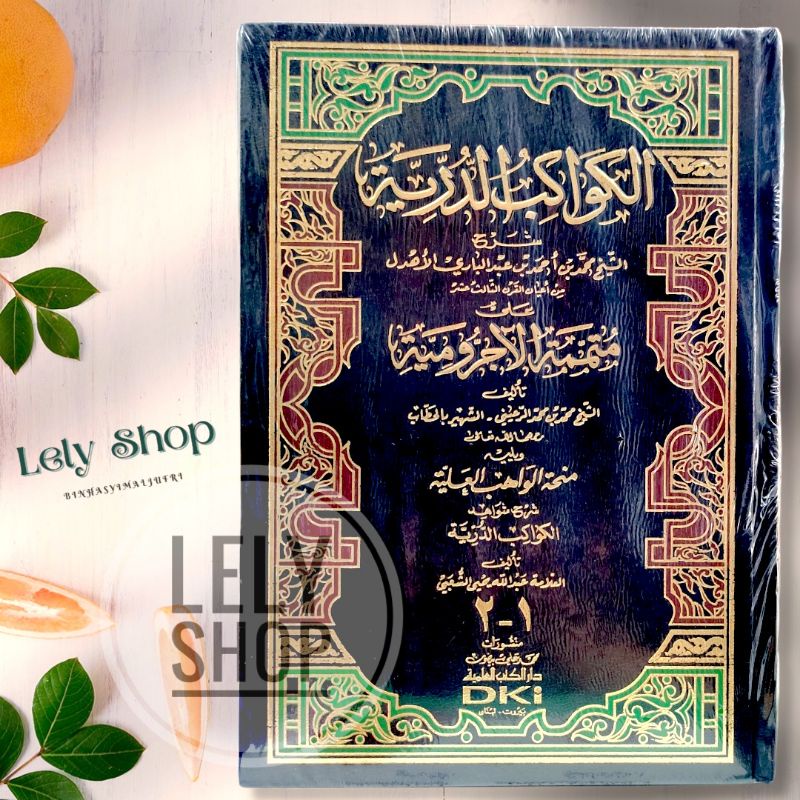 الكواكب الدرية
شرح
الشيخ محمد بن أحمد بن عبد الباري الأهدل
من أعيان القرن الثالث عشر
على
متممة الآجرومية
تأليف
الشيخ محمد بن محمد الرعيني - الشهير بالحطاب
رحمهما الله تعالى
ويليه
منحة الواهب العلية
شرح شواهد
الكواكب الدرية
تأليف
العلامة عبد الله يحيى الشعبي
١-٢
منشورات
محمد علي بيضون
دار الكتب العلمية
DKi
بيروت - لبنان
Lely Shop
BINHASYIMALJUFRI
LELY
SHOP